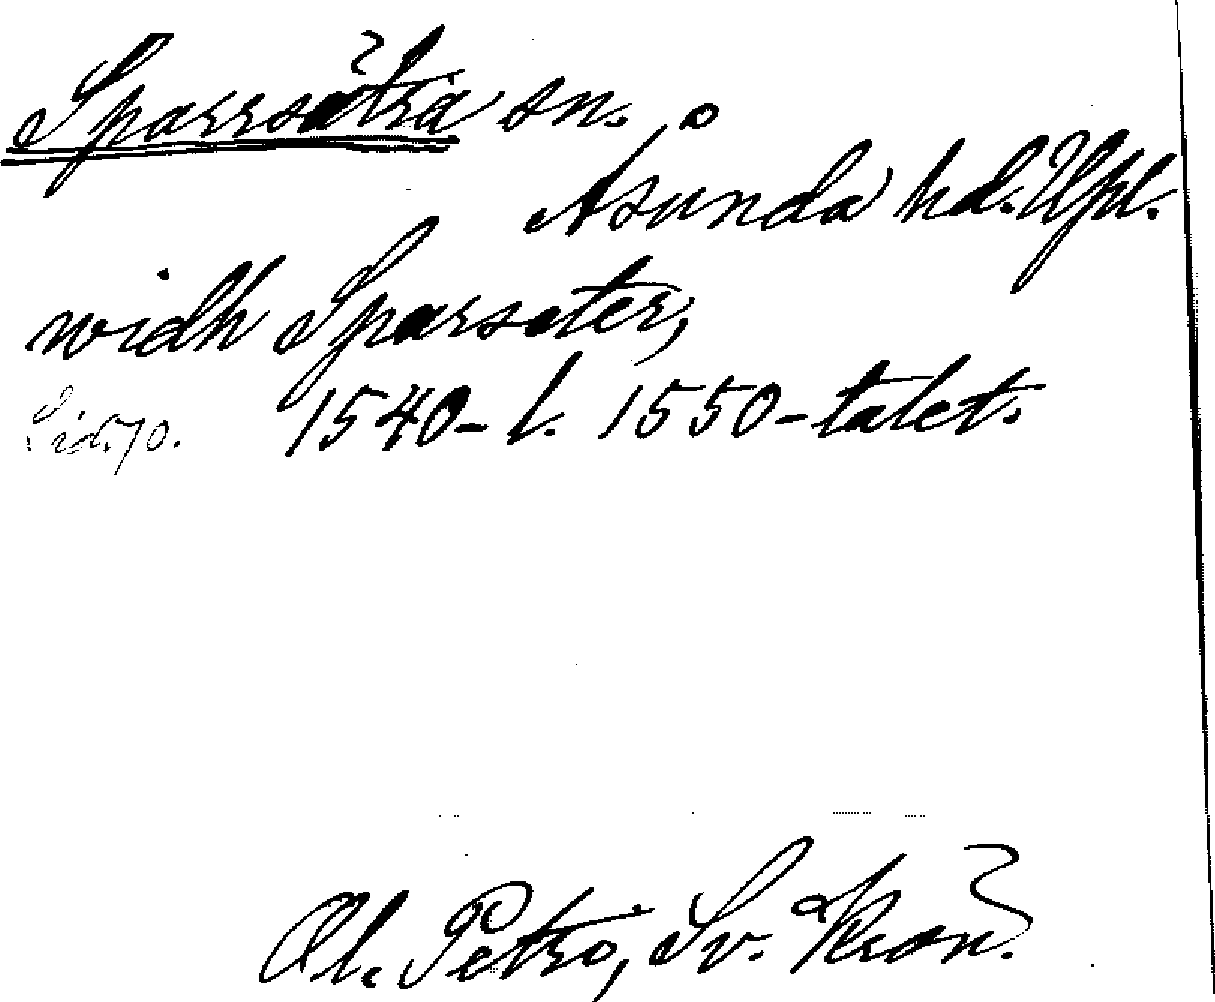 Sparrsätra sn.
Åsunda hd. Upl.
widh Sparsater,
Sid. 70. 1540- l. 1550-talet.
Ol. Petro, Sv. Krön.